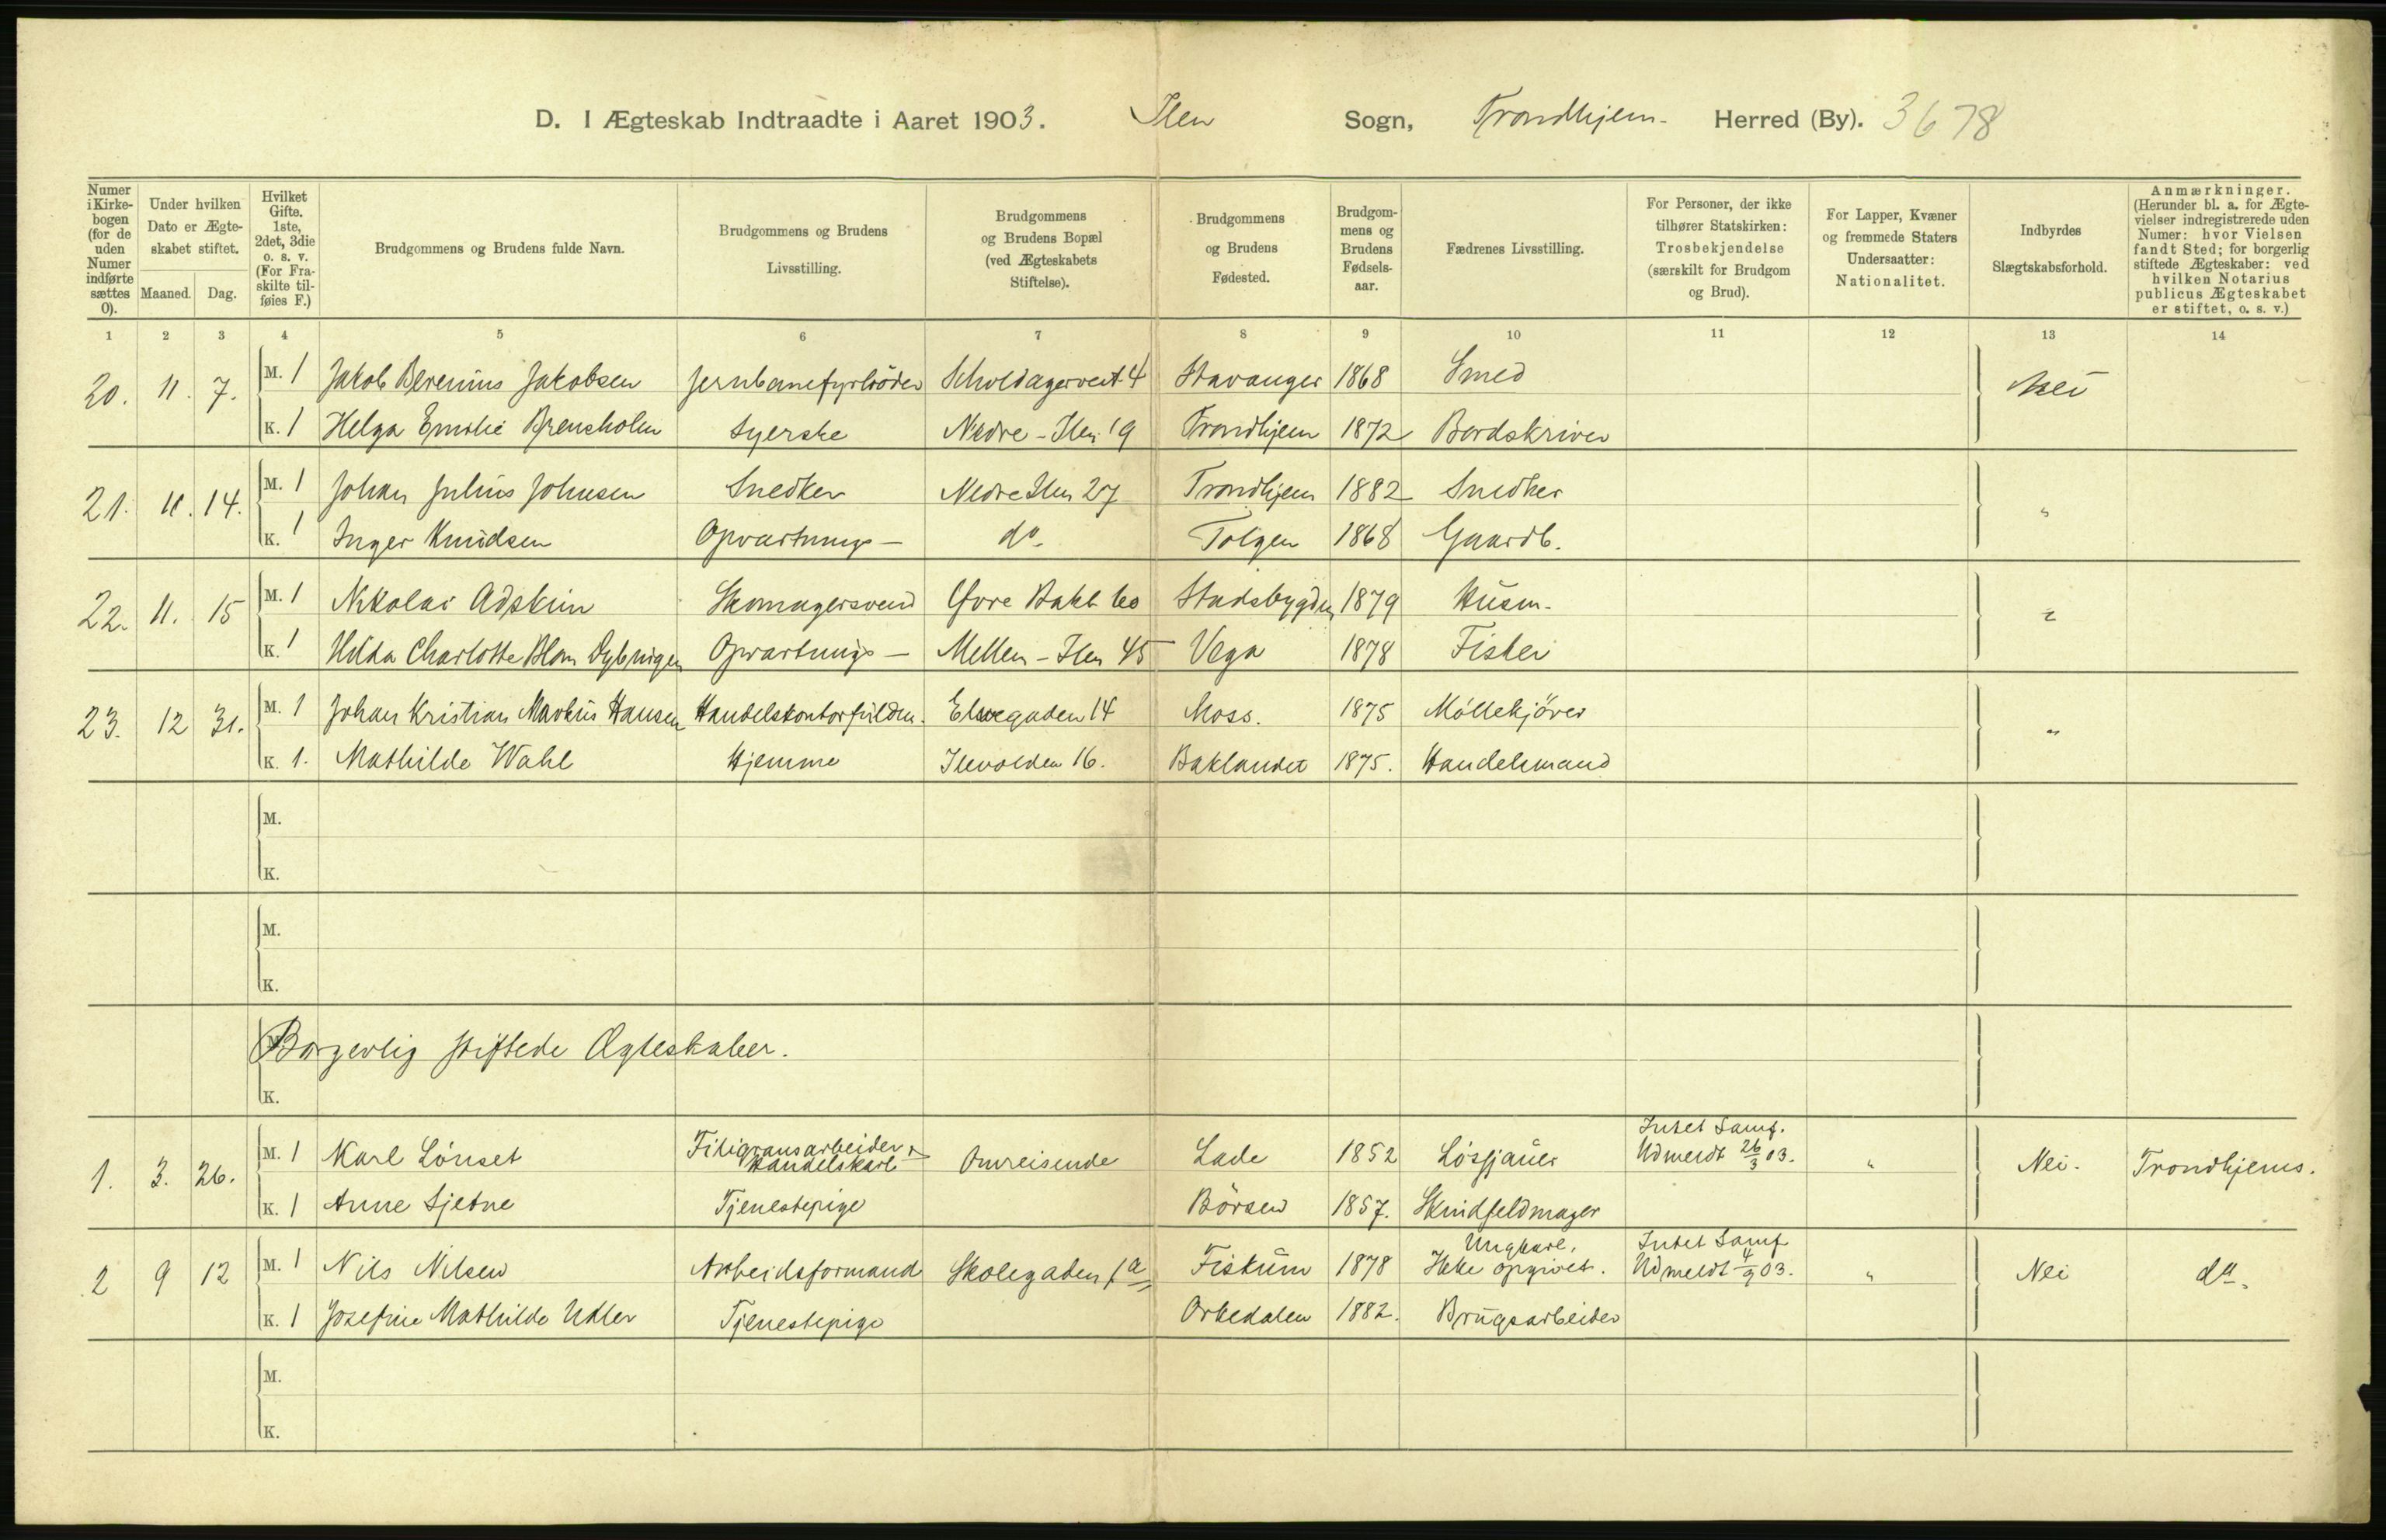 D. I Ægteskab Indtraadte i Aaret 1903. Ilen Sogn, Trondhjem. Herred (By). 3678
Numer i Kirke-bogen (for de uden Numer indførte sættes 0).
Under hvilken Dato er Ægte-skabet stiftet.
Maaned. Dag.
Hvilket Gifte. 1ste, 2det, 3die o. s. v. (For Fra-skilte til-føies F.)
Brudgommens og Brudens fulde Navn.
Brudgommens og Brudens Livsstilling.
Brudgommens og Brudens Bopæl (ved Ægteskabets Stiftelse).
Brudgommens og Brudens Fødested.
Brudgom-mens og Brudens Fødsels-aar.
Fædrenes Livsstilling.
For Personer, der ikke tilhører Statskirken: Trosbekjendelse (særskilt for Brudgom og Brud).
For Lapper, Kvæner og fremmede Staters Undersaatter: Nationalitet.
Indbyrdes Slægtskabsforhold.
Anmærkninger. (Herunder bl. a. for Ægte-vielser indregistrerede uden Numer: hvor Vielsen fandt Sted; for borgerlig stiftede Ægteskaber: ved hvilken Notarius publicus Ægteskabet er stiftet, o. s. v.)
1 2 3 4 5 6 7 8 9 10 11 12 13 14
20. 11. 7. M. 1 Jakob Berenius Jakobsen Jernbanefyrbøder 4 Stavanger 1868 Smed Nei
K. 1 Helga Emilie Syerske Nedre-Ilen 19 Trondhjem 1872 Bordskriver
21. 11. 14. M. 1 Johan Julius Johnsen Snedker Nedre Ilen 27 Trondhjem 1882 Snedker "
K. 1 Inger Knudsen Opvartnings- do. Tolgen 1868 Gaardb.
22. 11. 15 M. 1 Nikolai Adskin Skomagersvend Øvre Bakl. 60 Stadsbygden 1879 Husm. "
K. 1 Hilda Charlotte Blom Opvartnings- Mellem-Ilen 45 Vega 1878 Fisker
23. 12 31. M. 1 Johan Kristian Markus Hansen Handelskontorfuldm. Elvegaden 14 Moss. 1875 Møllekjører "
K. 1. Mathilde Wahl Hjemme Ilevolden 16. Baklandet 1875. Handelsmand
M.
K.
M.
K.
M. Borgerlig stiftede Ægteskaber.
K.
1. 3. 26. M. 1 Karl Lønset Filigransarbeider & Handelskarl Omreisende Lade 1852 Løsjauer Intet Samf. Udmeldt 26/3 03. " Nei. Trondhjems.
K. 1 Anne Sjetne Tjenestepige Börsen 1857. Skindfeldmager
2 9 12 M. 1 Nils Nilsen Arbeidsformand Skolegaden 1a Fiskum 1878 Ungkarl. Ikke opgivet. Intet Samf. Udmeldt 4/9 03. " Nei do.
K. 1 Josefine Mathilde Udler Tjenestepige Orkedalen 1882. Brugsarbeider
M.
K.